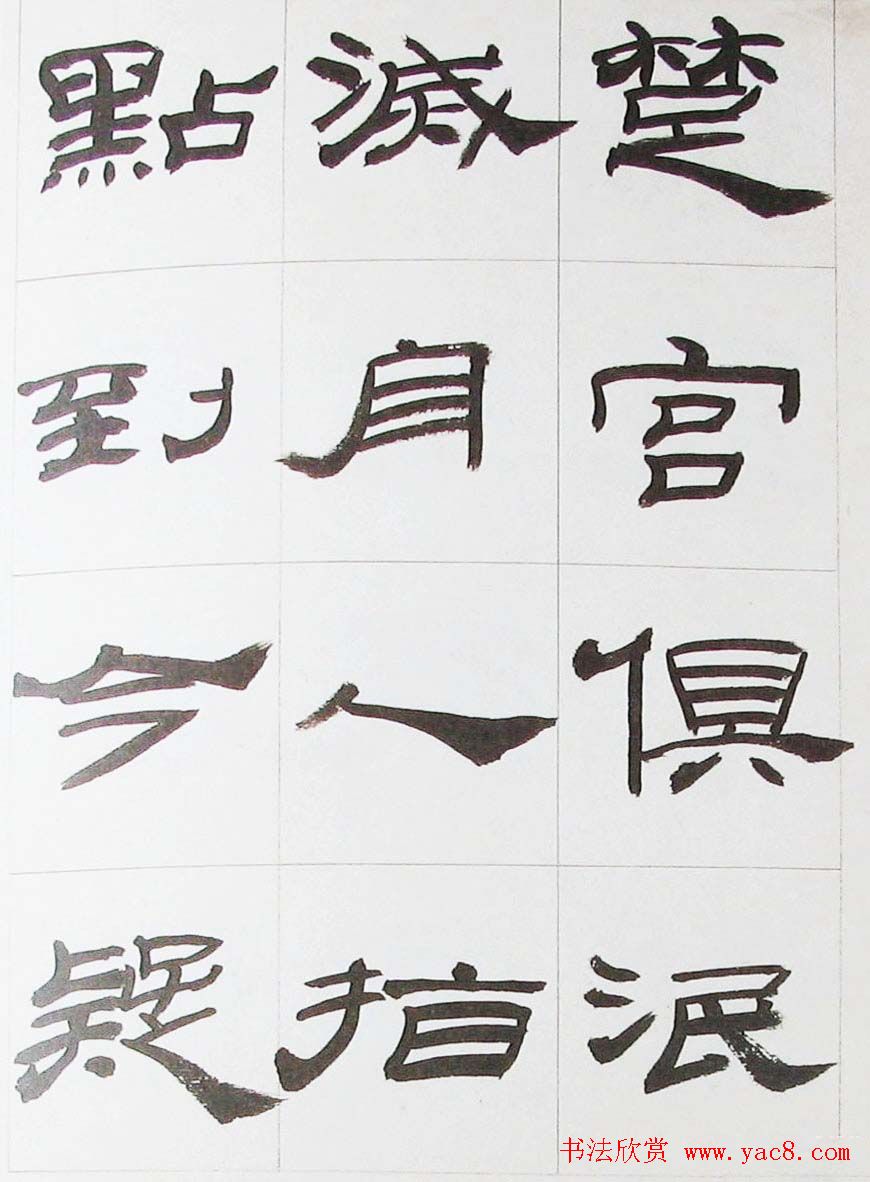 楚宮俱泯
滅舟人指
點到今疑
书法欣赏 www.yac8.com